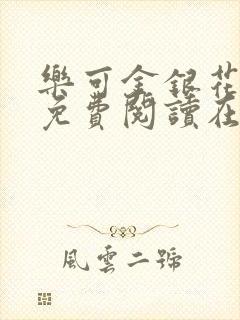 樂可金銀花
免費閱讀在
風雲二號